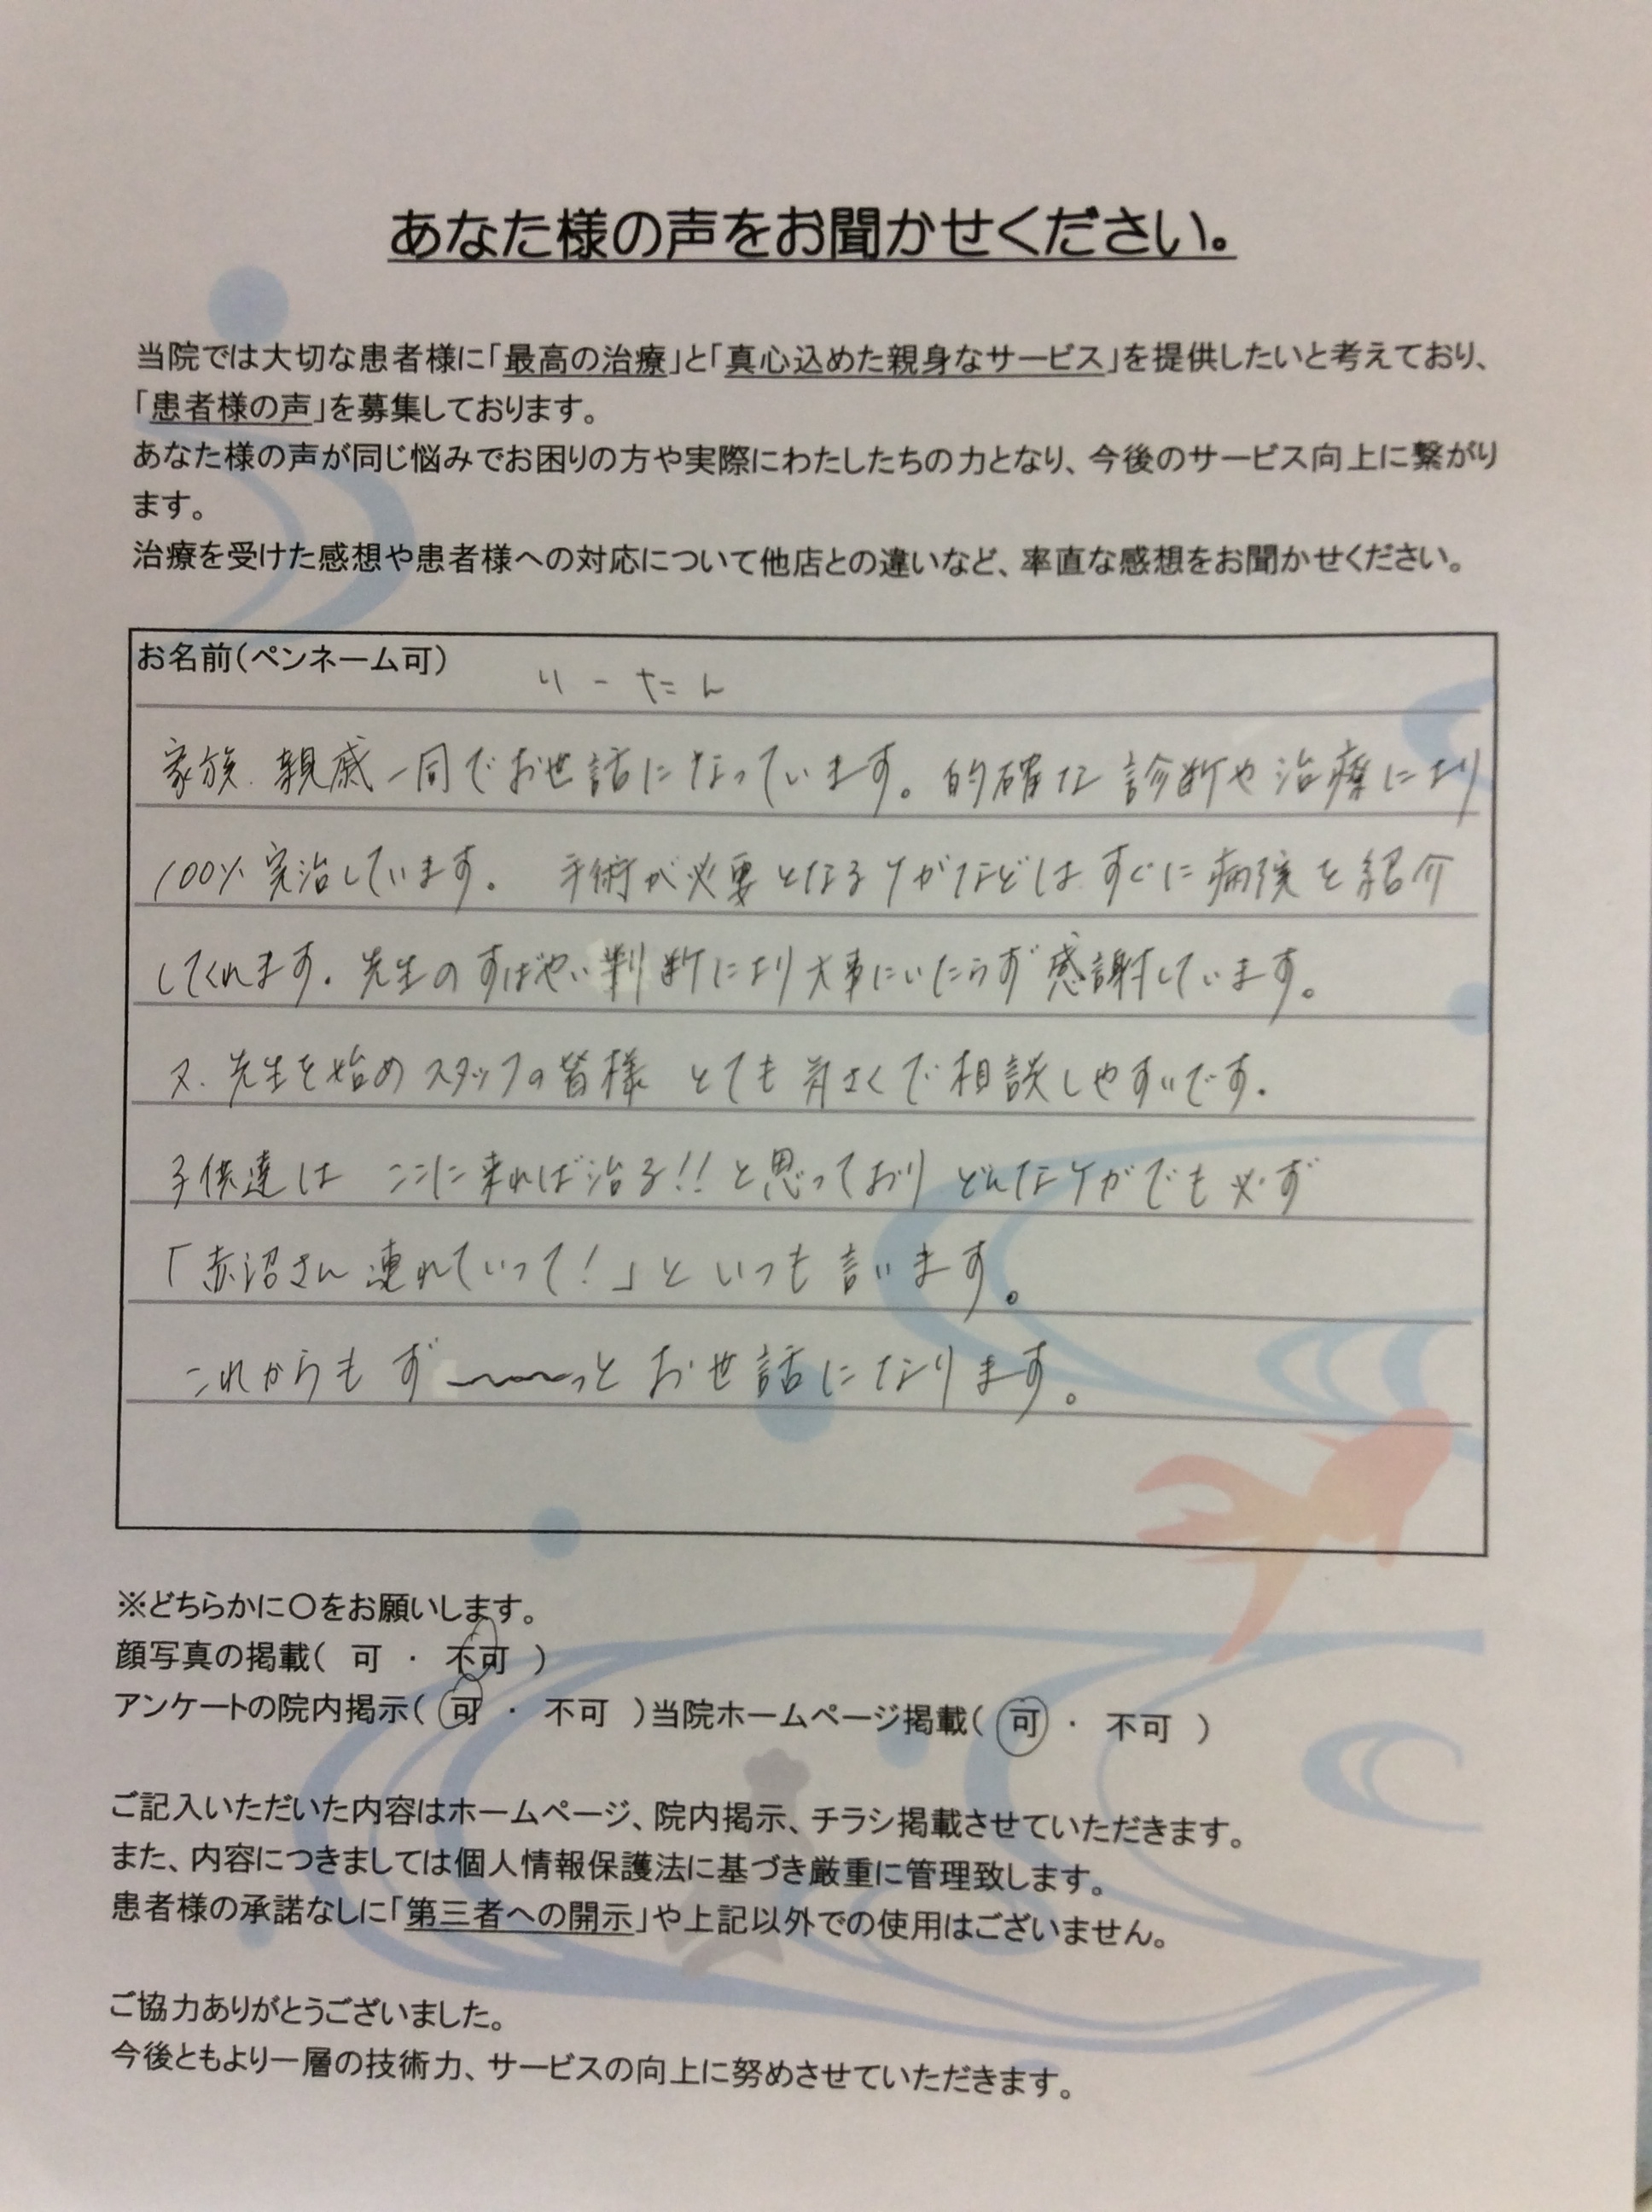 あなた様の声をお聞かせください。
当院では大切な患者様に「最高の治療」と「真心込めた親身なサービス」を提供したいと考えており、
「患者様の声」を募集しております。
あなた様の声が同じ悩みでお困りの方や実際にわたしたちの力となり、今後のサービス向上に繋がり
ます。
治療を受けた感想や患者様への対応について他店との違いなど、率直な感想をお聞かせください。
お名前(ペンネーム可)
りーたん
家族、親戚一同でお世話になっています。的確な診断や治療により
100%完治しています。 手術が必要となるケガなどは すぐに病院を紹介
してくれます。先生のすばやい判断により大事にいたらず感謝しています。
又、先生を始めスタッフの皆様 とても気さくで相談しやすいです。
子供達は ここに来れば治る!!と思っており どんなケガでも必ず
「赤沼さん連れていって!」といつも言います。
これからもず〜〜〜っと お世話になります。
※どちらかに〇をお願いします。
顔写真の掲載( 可 ・ 不可 )
アンケートの院内掲示( 可 ・ 不可 )当院ホームページ掲載( 可 ・ 不可 )
ご記入いただいた内容はホームページ、院内掲示、チラシ掲載させていただきます。
また、内容につきましては個人情報保護法に基づき厳重に管理致します。
患者様の承諾なしに「第三者への開示」や上記以外での使用はございません。
ご協力ありがとうございました。
今後ともより一層の技術力、サービスの向上に努めさせていただきます。